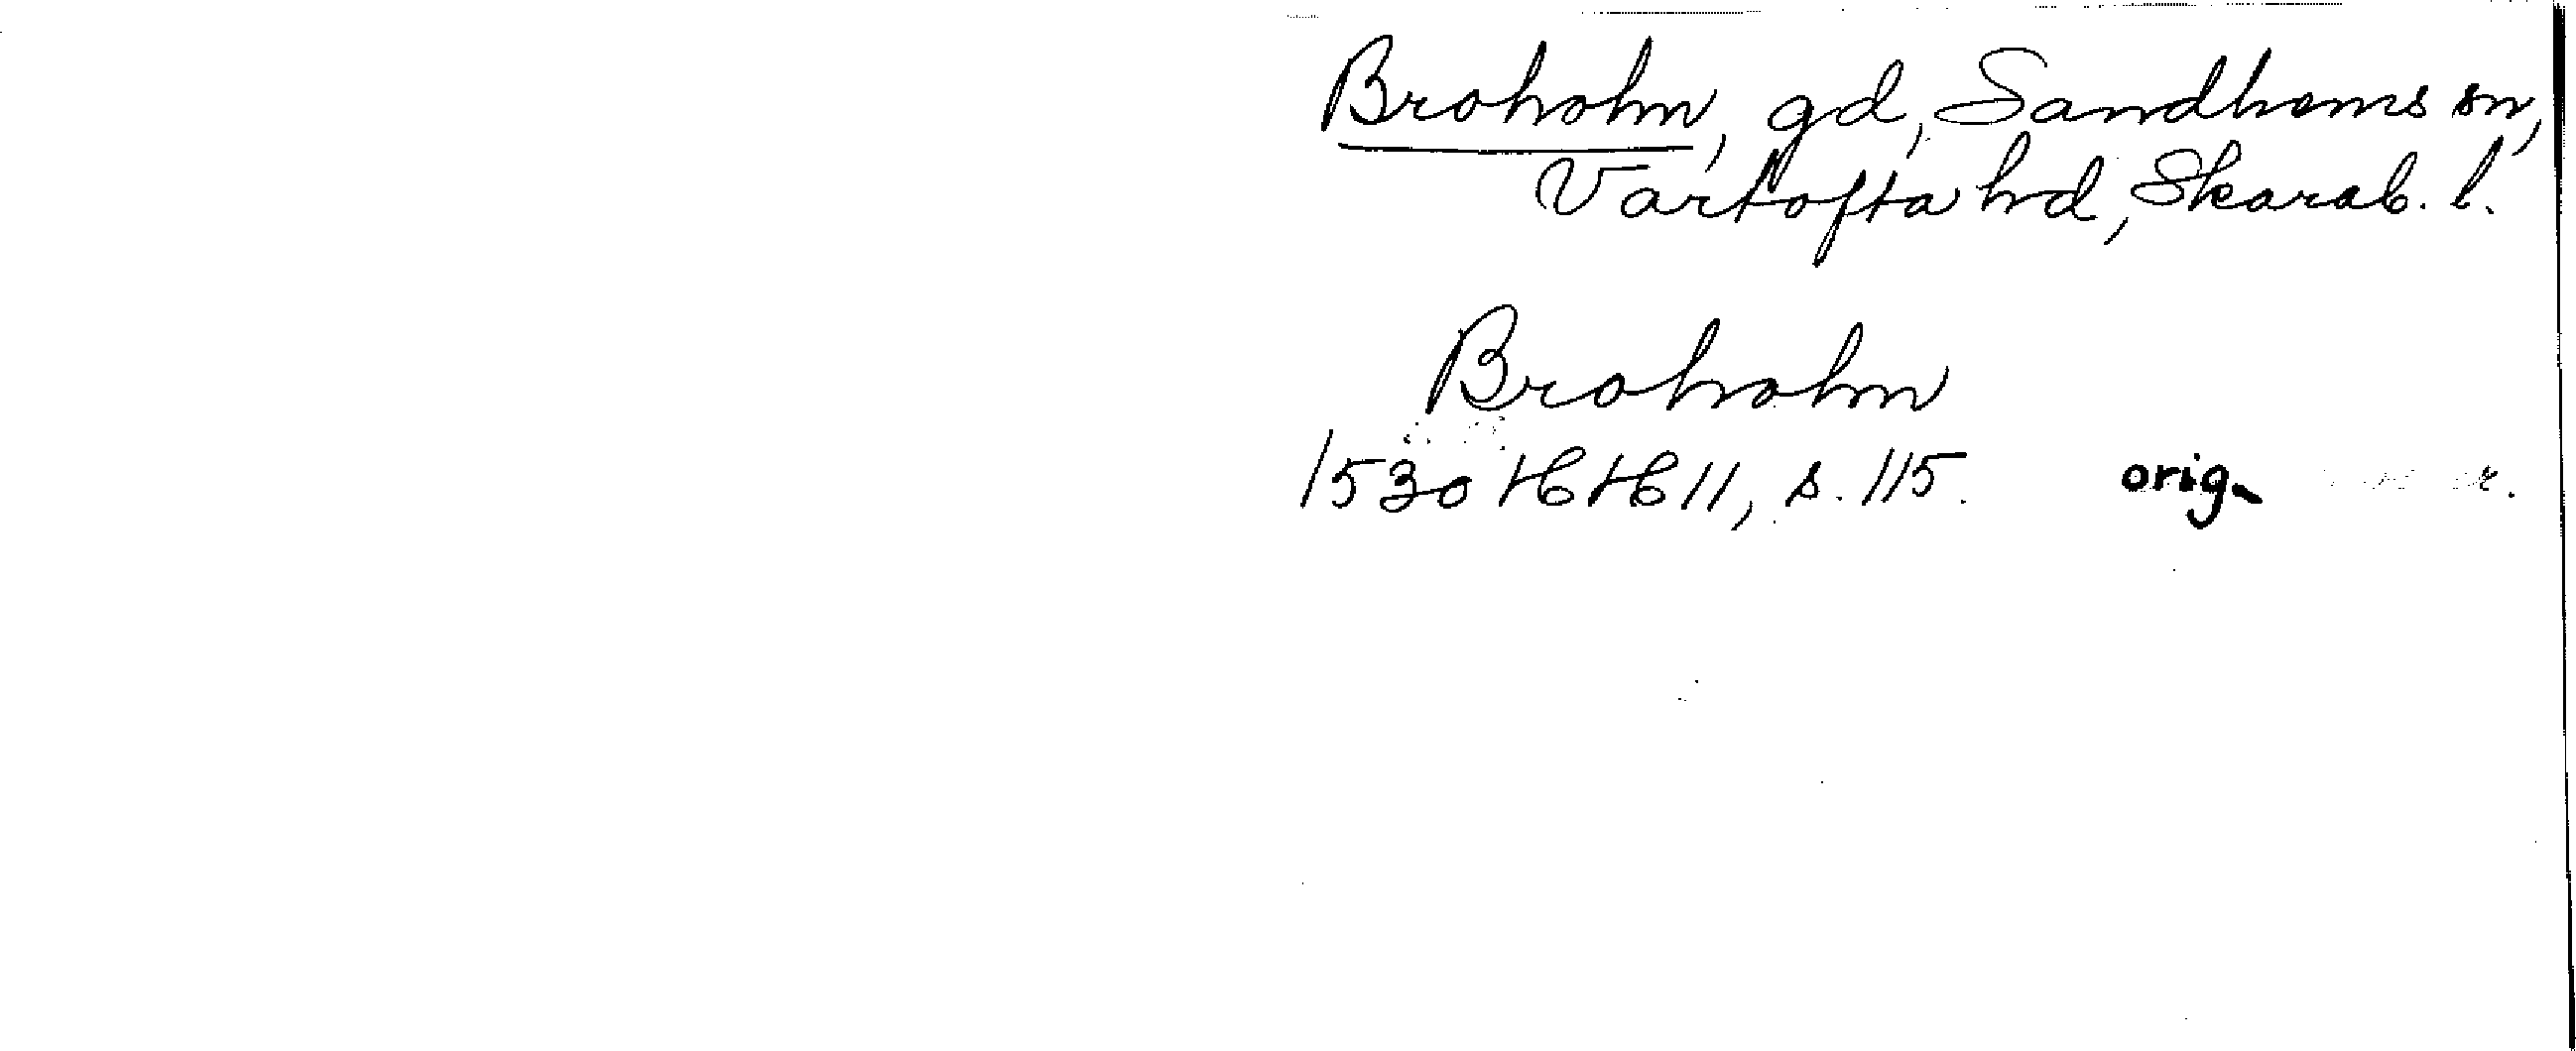 Broholm, gd, Sandhems sn,
Vartofta hd, Skarab. l.
Broholm
1530 HH 11, s. 115. orig.